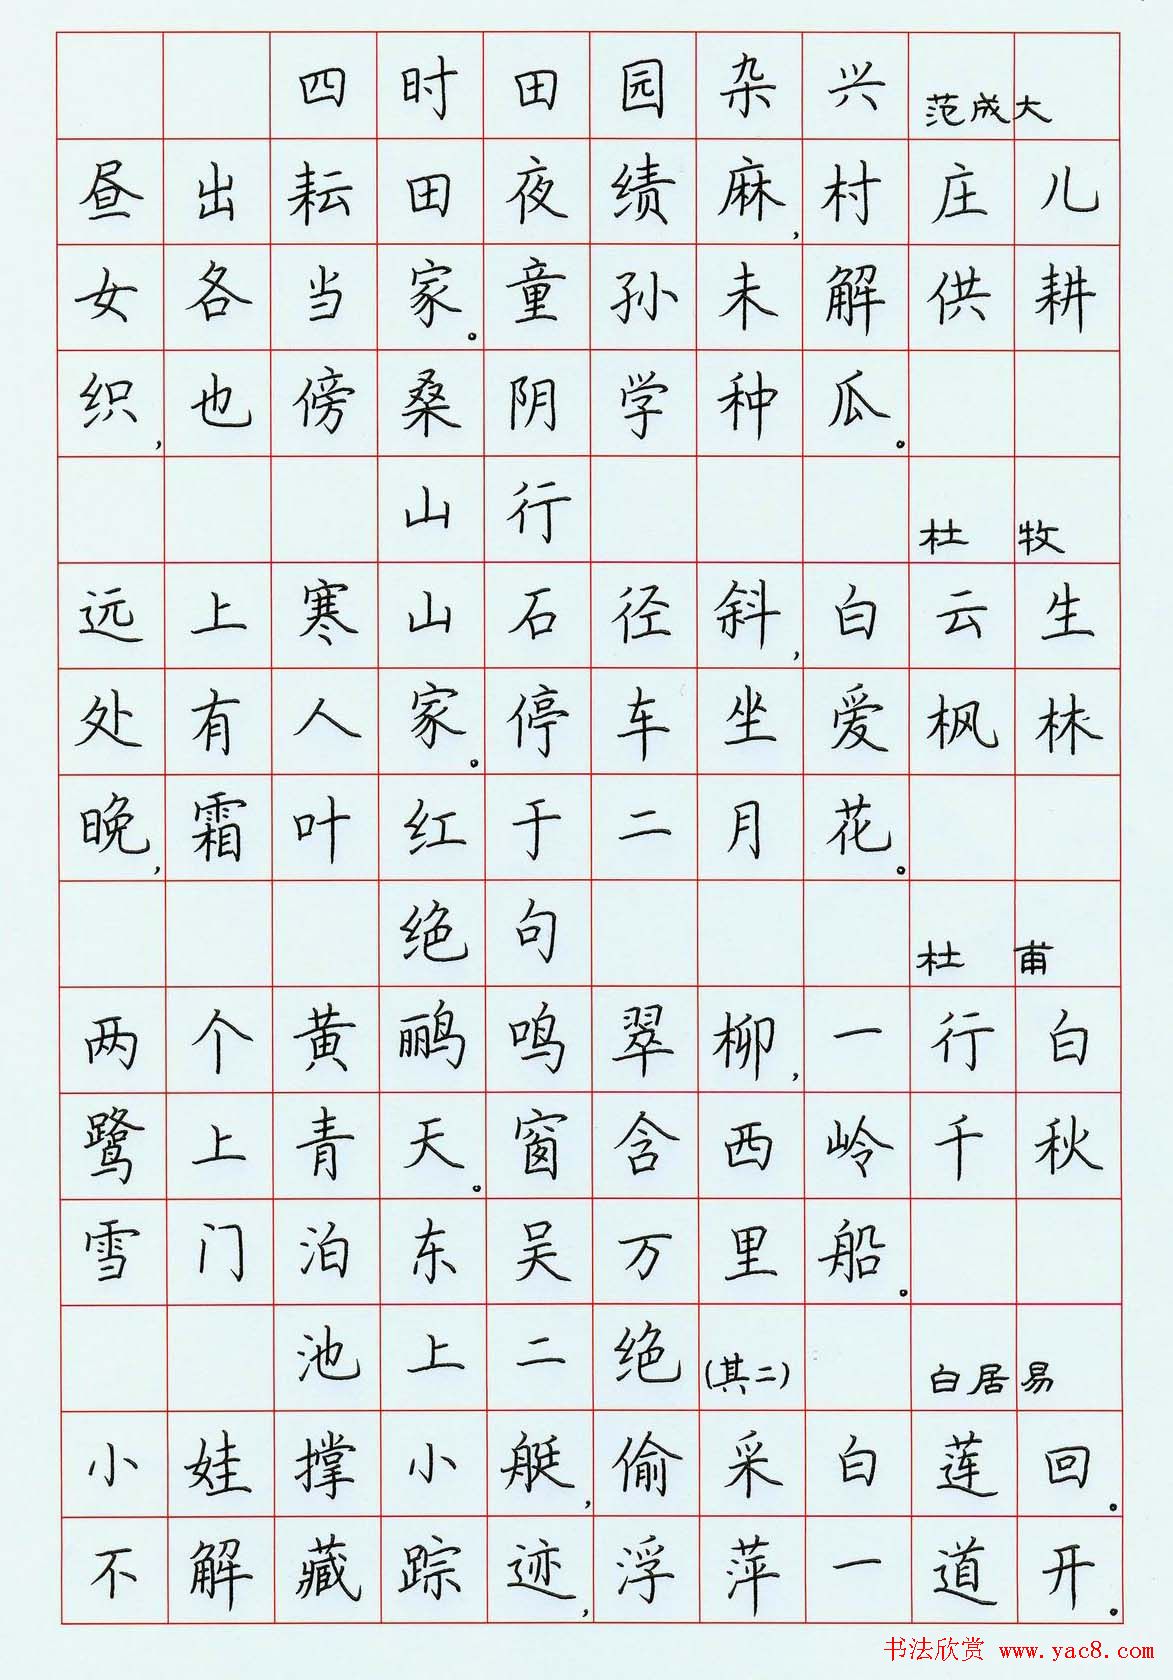 四时田园杂兴 范成大
昼出耘田夜绩麻,村庄儿
女各当家。童孙未解供耕
织,也傍桑阴学种瓜。
山行 杜牧
远上寒山石径斜,白云生
处有人家。停车坐爱枫林
晚,霜叶红于二月花。
绝句 杜甫
两个黄鹂鸣翠柳,一行白
鹭上青天。窗含西岭千秋
雪门泊东吴万里船。
池上二绝(其二) 白居易
小娃撑小艇,偷采白莲回。
不解藏踪迹,浮萍一道开。
书法欣赏 www.yac8.com